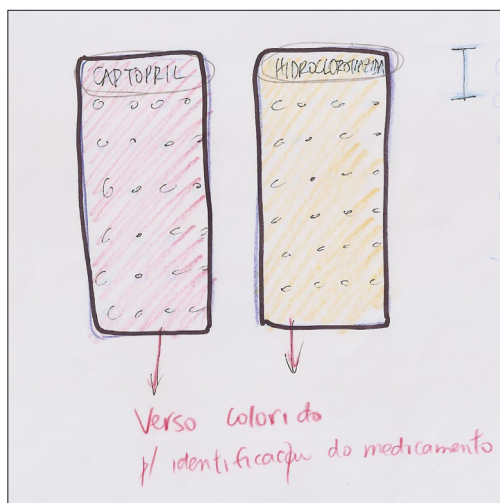 CAPTOPRIL
HIDROCLOROTIAZIDA
Verso colorido
p/ identificação do medicamento